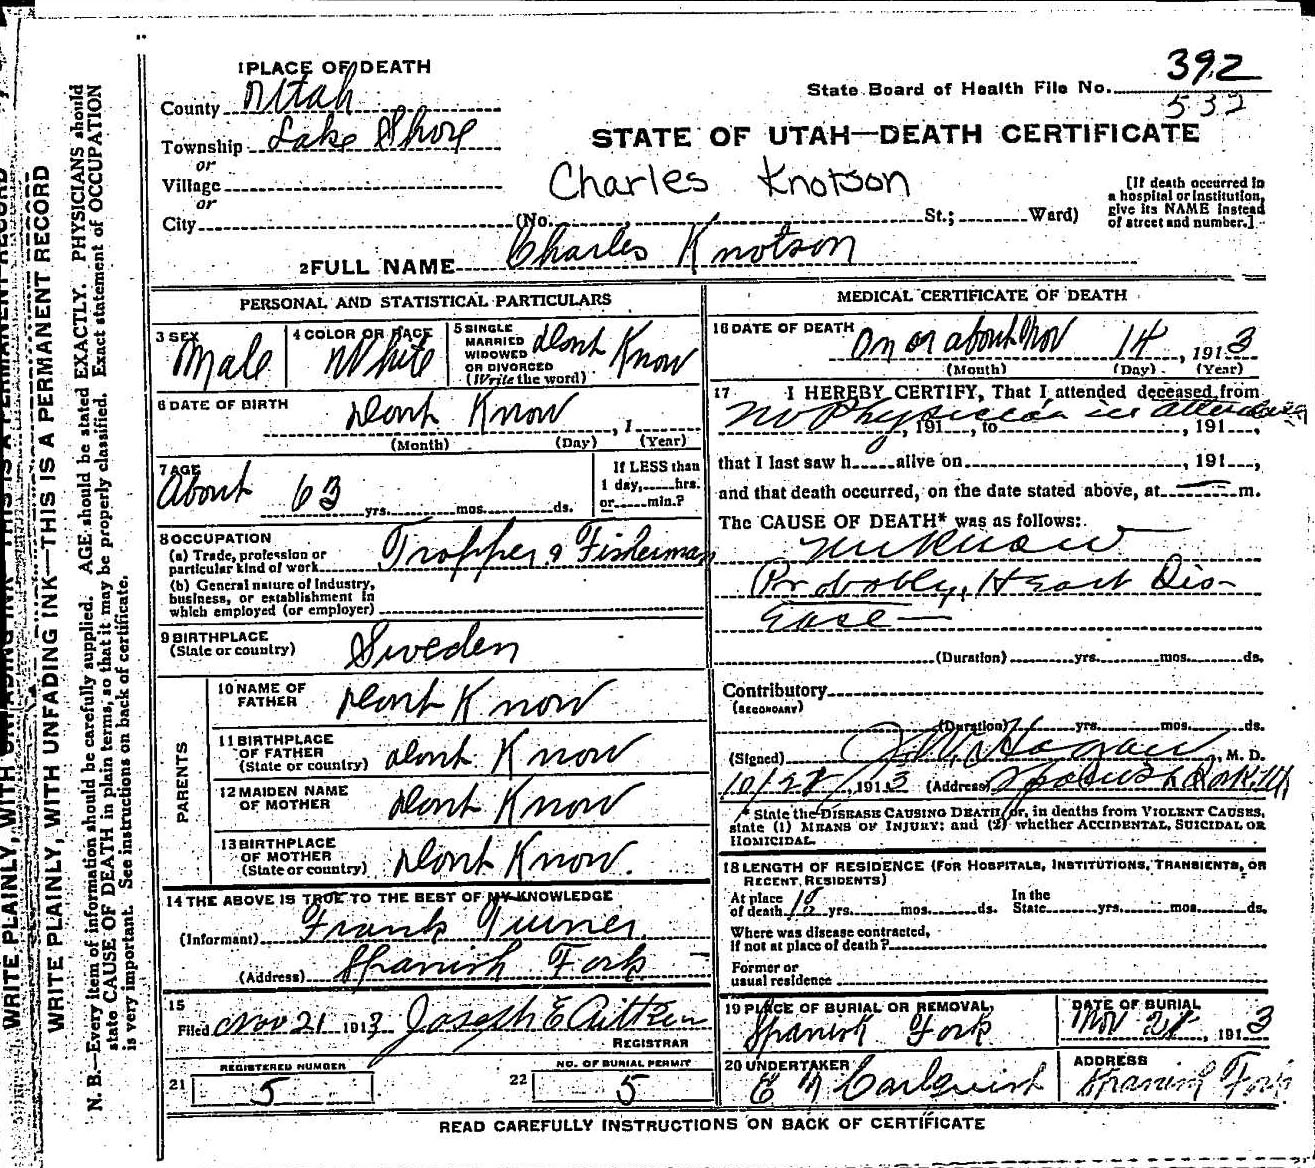 1 PLACE OF DEATH
County Utah
Township Lake Shore
or
Village
or
City
State Board of Health File No. 392
532
STATE OF UTAH—DEATH CERTIFICATE
Charles Knotson
(No. St.; Ward)
[If death occurred in
a hospital or institution,
give its NAME instead
of street and number.]
2 FULL NAME Charles Knotson
PERSONAL AND STATISTICAL PARTICULARS
3 SEX Male
4 COLOR OR RACE White
5 SINGLE
MARRIED
WIDOWED
OR DIVORCED
(Write the word) dont Know
6 DATE OF BIRTH dont Know , 1
(Month) (Day) (Year)
7 AGE About 63 yrs. mos. ds.
If LESS than
1 day, hrs.
or min.?
8 OCCUPATION
(a) Trade, profession or
particular kind of work Tropper & Fisherman
(b) General nature of Industry,
business, or establishment in
which employed (or employer)
9 BIRTHPLACE
(State or country) Sweden
PARENTS
10 NAME OF
FATHER dont Know
11 BIRTHPLACE
OF FATHER
(State or country) dont Know
12 MAIDEN NAME
OF MOTHER dont Know
13 BIRTHPLACE
OF MOTHER
(State or country) Dont Know.
14 THE ABOVE IS TRUE TO THE BEST OF MY KNOWLEDGE
(Informant) Frank Turner
(Address) Spanish Fork
15
Filed Nov 21 1913 Joseph E Aitken
REGISTRAR
REGISTERED NUMBER
21 5
NO. OF BURIAL PERMIT
22 5
MEDICAL CERTIFICATE OF DEATH
16 DATE OF DEATH on or about Nov 14, 1913
(Month) (Day) (Year)
17 I HEREBY CERTIFY, That I attended deceased from
No Physician in attendance , 191 , to , 191 ,
that I last saw h alive on , 191 ,
and that death occurred, on the date stated above, at m.
The CAUSE OF DEATH* was as follows:
unknow
Probobly, Heart Dis-
ease —
(Duration) yrs. mos. ds.
Contributory
(SECONDARY)
(Duration) yrs. mos. ds.
(Signed) Hagan, M. D.
1913 (Address)
* State the DISEASE CAUSING DEATH, or, in deaths from VIOLENT CAUSES,
state (1) MEANS OF INJURY: and (2) whether ACCIDENTAL, SUICIDAL OR
HOMICIDAL.
18 LENGTH OF RESIDENCE (FOR HOSPITALS, INSTITUTIONS, TRANSIENTS, OR
RECENT RESIDENTS)
At place
of death yrs. mos. ds.
In the
State yrs. mos. ds.
Where was disease contracted,
if not at place of death?
Former or
usual residence
19 PLACE OF BURIAL OR REMOVAL
Spanish Fork
DATE OF BURIAL
Nov 21, 1913
20 UNDERTAKER
ADDRESS
Spanish Fork
READ CAREFULLY INSTRUCTIONS ON BACK OF CERTIFICATE
WRITE PLAINLY, WITH UNFADING INK—THIS IS A PERMANENT RECORD
N. B.—Every item of information should be carefully supplied. AGE should be stated EXACTLY. PHYSICIANS should
state CAUSE OF DEATH in plain terms, so that it may be properly classified. Exact statement of OCCUPATION
is very important. See instructions on back of certificate.